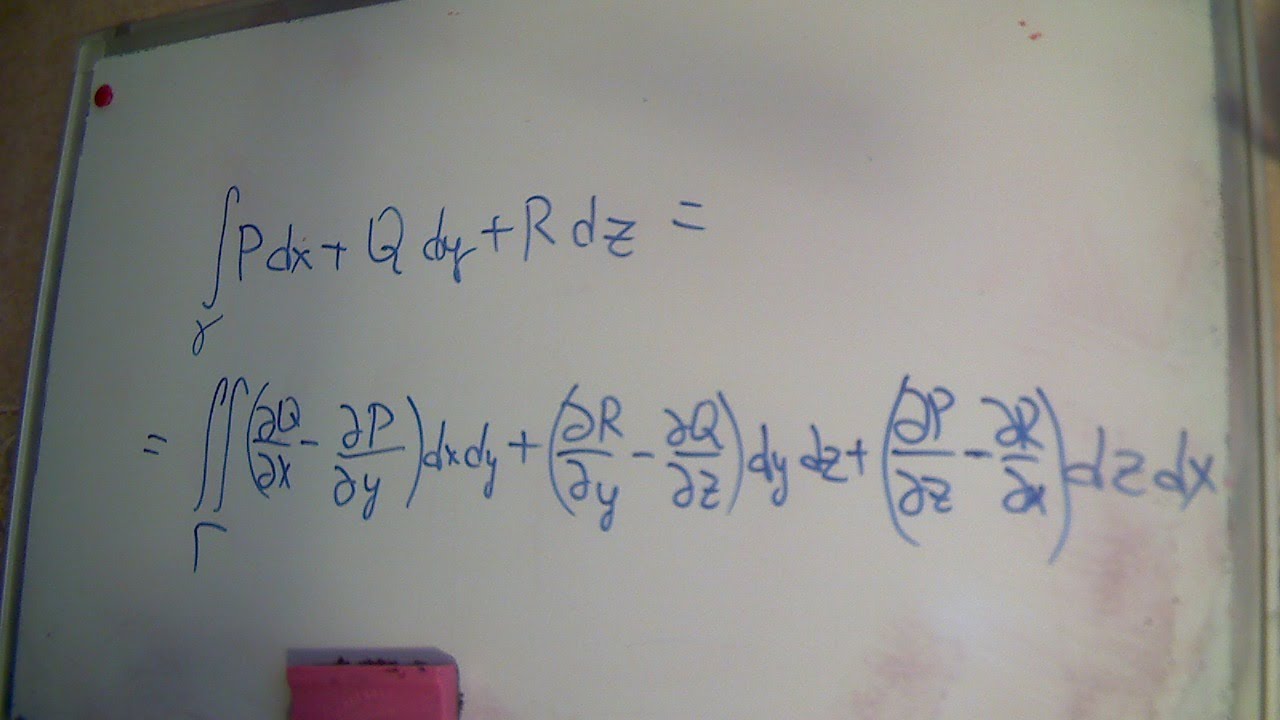 ∫_γ P dx + Q dy + R dz =
= ∬_Γ (∂Q/∂x - ∂P/∂y) dx dy + (∂R/∂y - ∂Q/∂z) dy dz + (∂P/∂z - ∂R/∂x) dz dx